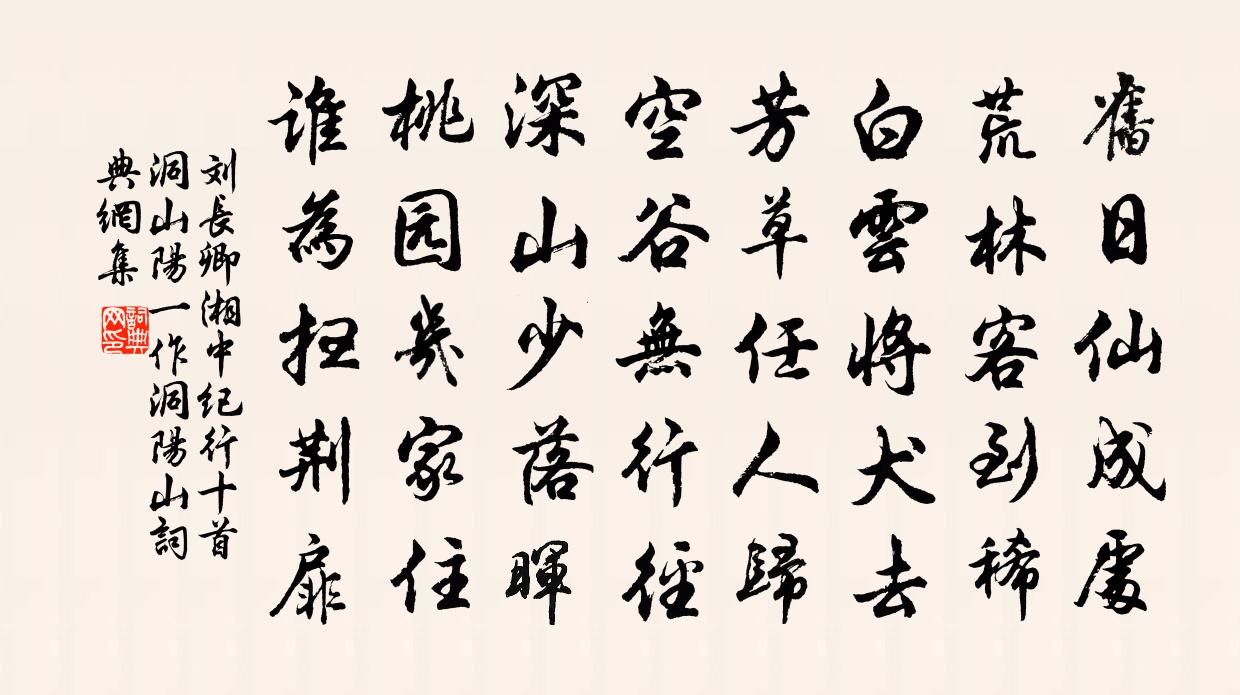 舊日仙成處
荒林客到稀
白雲將犬去
芳草任人歸
空谷無行徑
深山少落暉
桃园幾家住
谁為扫荆扉
刘長卿湘中纪行十首
洞山陽一作洞陽山詞
典網集
詞典网印